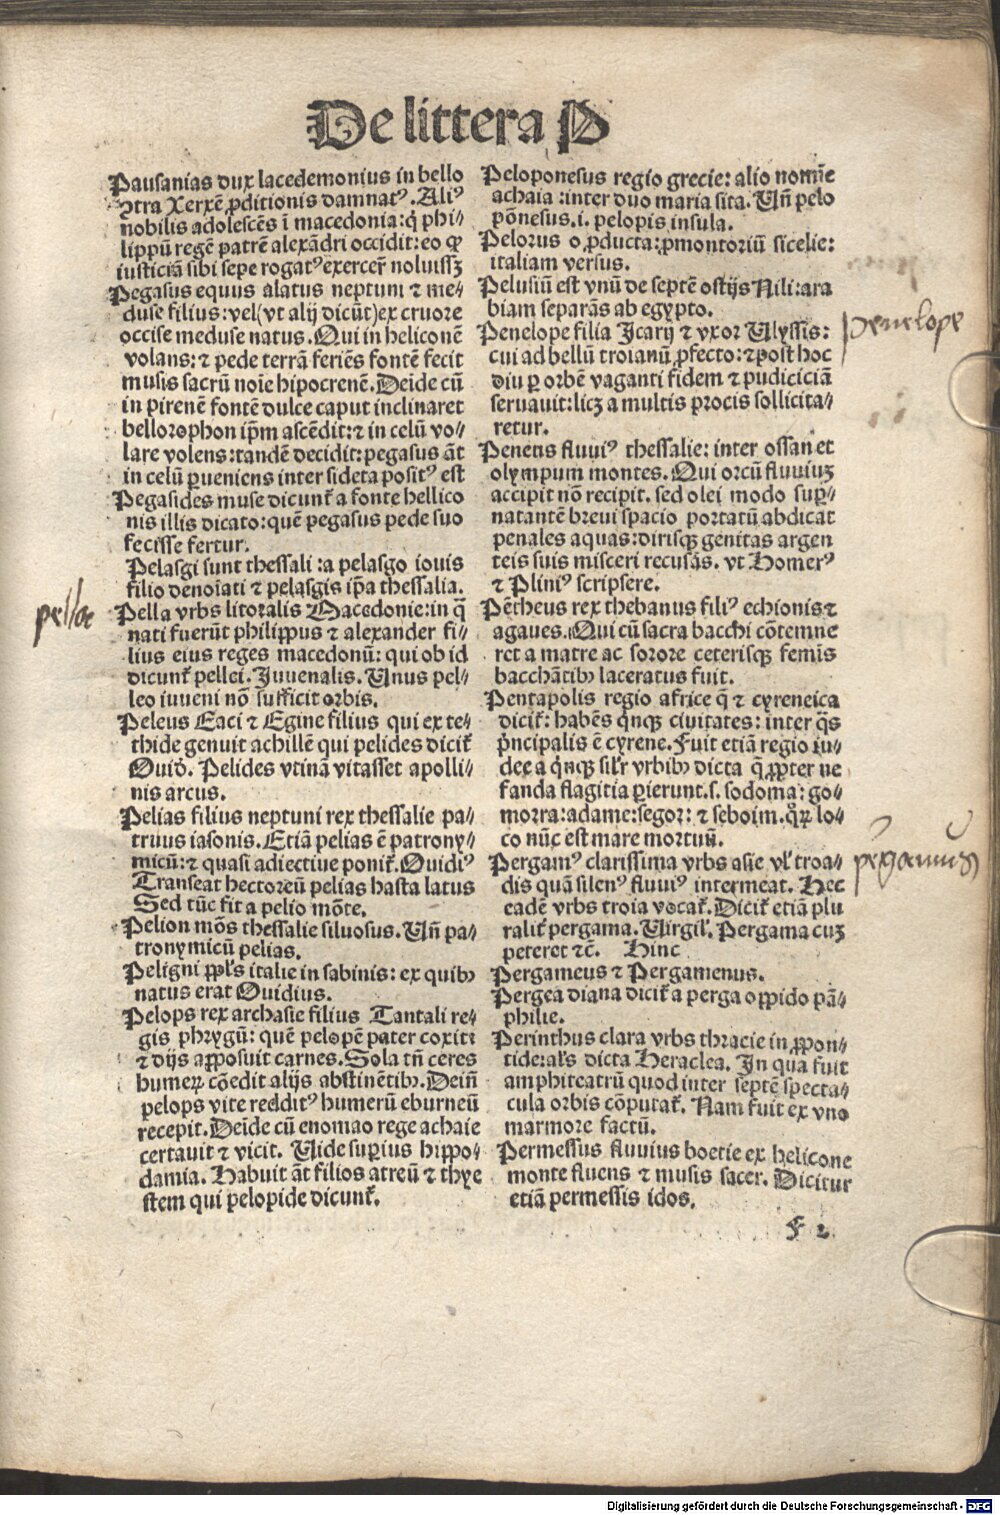 De littera P
Pausanias dux lacedemonius in bello
ꝯtra Xerxē ꝓditionis damnatꝰ. Aliꝰ
nobilis adolescēs ī macedonia: q̇ phi⸗
lippū regē patrē alexādri occidit: eo ꝙ
iusticiā sibi sepe rogatꝰ exercer̄ noluissꝫ
Pegasus equus alatus neptuni ⁊ me⸗
duse filius: vel (vt alij dicūt) ex cruore
occise meduse natus. Qui in heliconē
volans: ⁊ pede terrā feriēs fontē fecit
musis sacrū noīe hipocrenē. Deīde cū
in pirenē fontē dulce caput inclinaret
bellorophon ip̄m ascēdit: ⁊ in celū vo⸗
lare volens: tandē decidit: pegasus āt
in celū ꝑueniens inter sideta positꝰ est
Pegasides muse dicunt᷑ a fonte hellico
nis illis dicato: quē pegasus pede suo
fecisse fertur.
Pelasgi sunt thessali: a pelasgo iouis
filio denoīati ⁊ pelasgis ip̄a thessalia.
Pella vrbs litoralis Macedonie: in q̄
nati fuerūt philippus ⁊ alexander fi⸗
lius eius reges macedonū: qui ob id
dicunt᷑ pellei. Juuenalis. Unus pel⸗
leo iuueni nō sufficit orbis.
Peleus Eaci ⁊ Egine filius qui ex te⸗
thide genuit achillē qui pelides dicit᷑
Ouid̄. Pelides vtinā vitasset apolli⸗
nis arcus.
Pelias filius neptuni rex thessalie pa⸗
truus iasonis. Etiā pelias ē patrony⸗
micū: ⁊ quasi adiectiue ponit᷑. Ouidiꝰ
Transeat hectoreū pelias hasta latus
Sed tūc fit a pelio mōte.
Pelion mōs thessalie siluosus. Un̄ pa⸗
tronymicū pelias.
Peligni ppl̄s italie in sabinis: ex quibꝰ
natus erat Ouidius.
Pelops rex archasie filius Tantali re⸗
gis phrygū: quē pelopē pater coxit:
⁊ dijs apposuit carnes. Sola tn̄ ceres
humeꝝ cōedit alijs abstinētibꝰ. Dein̄
pelops vite redditꝰ humerū eburneū
recepit. Deīde cū enomao rege achaie
certauit ⁊ vicit. Vide supius hippo⸗
damia. Habuit āt filios atreū ⁊ thye
stem qui pelopide dicunt᷑.
pellae
Peloponesus regio grecie: alio nomīe
achaia: inter duo maria sita. Un̄ pelo
pōnesus .i. pelopis insula.
Pelorus o ꝓducta: ꝓmontoriū sicelie:
italiam versus.
Pelusiū est vnū de septē ostijs Nili: ara
biam separās ab egypto.
Penelope filia Jcarij ⁊ vxor Ulyssis:
cui ad bellū troianū ꝓfecto: ⁊ post hoc
diu ꝑ orbē vaganti fidem ⁊ pudiciciā
seruauit: licꝫ a multis procis sollicita⸗
retur.
Peneus fluuiꝰ thessalie: inter ossan et
olympum montes. Qui orcū fluuiuꝫ
accipit nō recipit. sed olei modo suꝑ⸗
natantē breui spacio portatū abdicat
penales aquas: dirisqꝫ genitas argen
teis suis misceri recusās. vt Homerꝰ
⁊ Pliniꝰ scripsere.
Pētheus rex thebanus filiꝰ echionis ⁊
agaues. Qui cū sacra bacchi cōtemne
ret a matre ac sorore ceterisqꝫ femīs
bacchātibꝰ laceratus fuit.
Pentapolis regio africe q̄ ⁊ cyreneica
dicit᷑: habēs q̇nqꝫ ciuitates: inter q̄s
p̄ncipalis ē cyrene. Fuit etiā regio iu⸗
dee a q̇nqꝫ sil̄r vrbibꝰ dicta q̄ ꝓpter ne
fanda flagitia ꝑierunt .s. sodoma: go⸗
morra: adame: segor: ⁊ seboim. quoꝝ lo⸗
co nūc est mare mortuū.
Pergamꝰ clarissima vrbs asie vl̄ troa⸗
dis quā silenꝰ fluuiꝰ intermeat. Hec
eadē vrbs troia vocat᷑. Dicit᷑ etiā plu
ralit᷑ pergama. Virgil̄. Pergama cuꝫ
peteret ⁊c̄. Hinc
Pergameus ⁊ Pergamenus.
Pergea diana dicit᷑ a perga oppido pā⸗
philie.
Perinthus clara vrbs thracie in ꝓpon⸗
tide: al̄s dicta Heraclea. In qua fuit
amphiteatrū quod inter septē specta⸗
cula orbis cōputat᷑. Nam fuit ex vno
marmore factū.
Permessus fluuius boetie ex helicone
monte fluens ⁊ musis sacer. Dicitur
etiā permessis idos.
penelope
pergamus
F 2
Digitalisierung gefördert durch die Deutsche Forschungsgemeinschaft - DFG